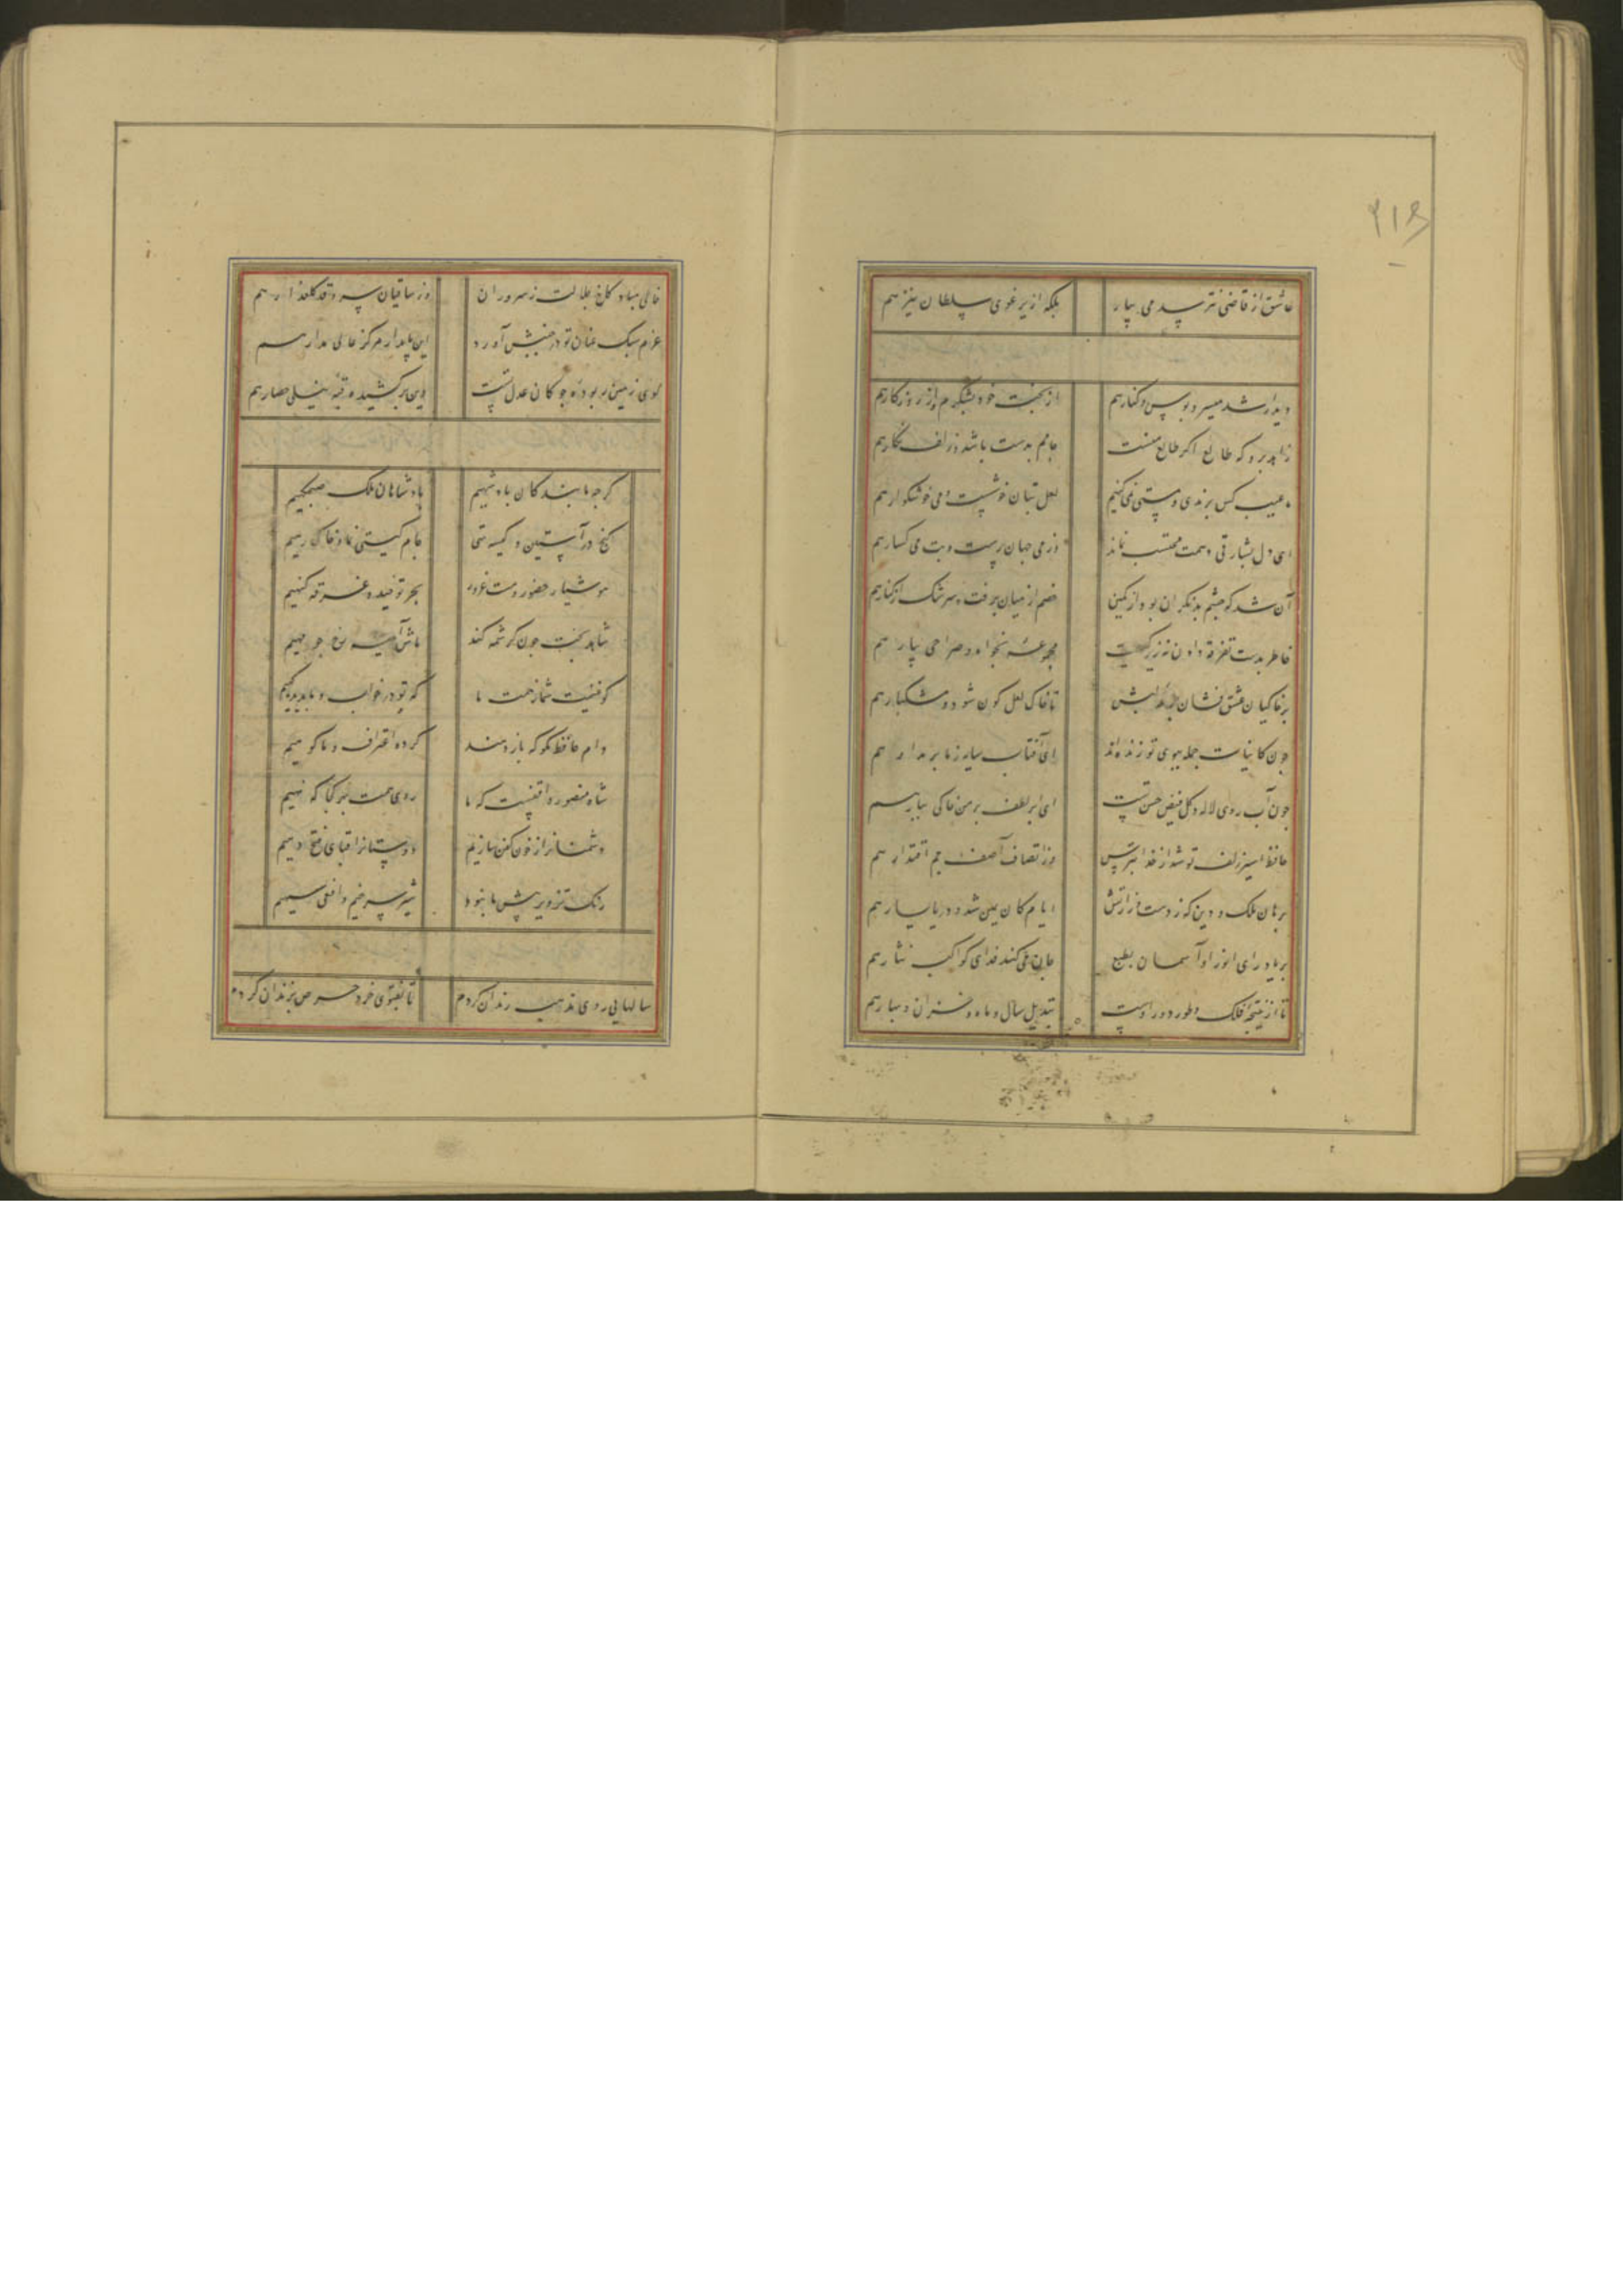 ۲۱۶
عاشق از قاضی نترسد می بیار بلکه از یرغوی سلطان نیز هم
دیدار شد میسر و بوس و کنار هم از بخت خود بشکرم و از روزگار هم
زاهد برو که طالع اگر طالع منست جامم بدست باشد و زلف نگار هم
ما عیب کس برندی و مستی نمی کنیم لعل بتان خوشست و می خوشگوار هم
ای دل بشارتی دهمت محتسب نماند وز می جهان پرست و بت می گسار هم
آن شد که چشم بد نگران بود از کمین خصم از میان برفت و سرشک از کنار هم
خاطر بدست تفرقه دادن نه زیرکیست مجموعهٔ بخواه و صراحی بیار هم
بر خاکیان عشق فشان جرعه لبش تا خاک لعل گون شود و مشکبار هم
چون کاینات جمله ببوی تو زنده اند ای آفتاب سایه ز ما بر مدار هم
چون آب روی لاله و گل فیض حسن تست ای ابر لطف بر من خاکی ببار هم
حافظ اسیر زلف تو شد از خدا بترس وز انتصاف آصف جم اقتدار هم
برهان ملک و دین که ز دست وزارتش ایام کان یمین شد و دریا یسار هم
بر یاد رای انور او آسمان بصبح جان می کند فدای کواکب نثار هم
تا از نتیجه فلک و طور دور اوست تبدیل سال و ماه و خزان و بهار هم
خالی مباد کاخ جلالت ز سروران وز ساقیان سرو قد گلعذار هم
عزم سبک عنان تو در جنبش آورد این پایدار مرکز عالی مدار هم
گوی زمین ربوده چوگان عدل تست وین برکشیده قبه نیلی حصار هم
گرچه ما بندگان پادشهیم پادشاهان ملک صبحگهیم
گنج در آستین و کیسه تهی جام گیتی نما و خاک رهیم
هوشیار حضور و مست غرور بحر توحید و غرقه گنهیم
شاهد بخت چون کرشمه کند ماش آیینه رخ چو مهیم
گو غنیت شمار همت ما که تو در خواب و ما بدیده گهیم
وام حافظ بگو که باز دهند کرده اعتراف و ما گوهیم
شاه منصور واقفست که ما روی همت بهر کجا که نهیم
دشمنانرا ز خون کفن سازیم دوستانرا قبای فتح دهیم
رنگ تزویر پیش ما نبود شیر سرخیم و افعی سیهیم
سالها پی روی مذهب رندان کردم تا بفتوی خرد حرص بزندان کردم